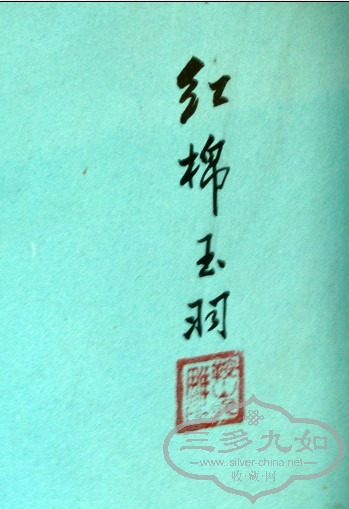 红棉玉羽
三多九如
www.silver-china.net
收·藏·网